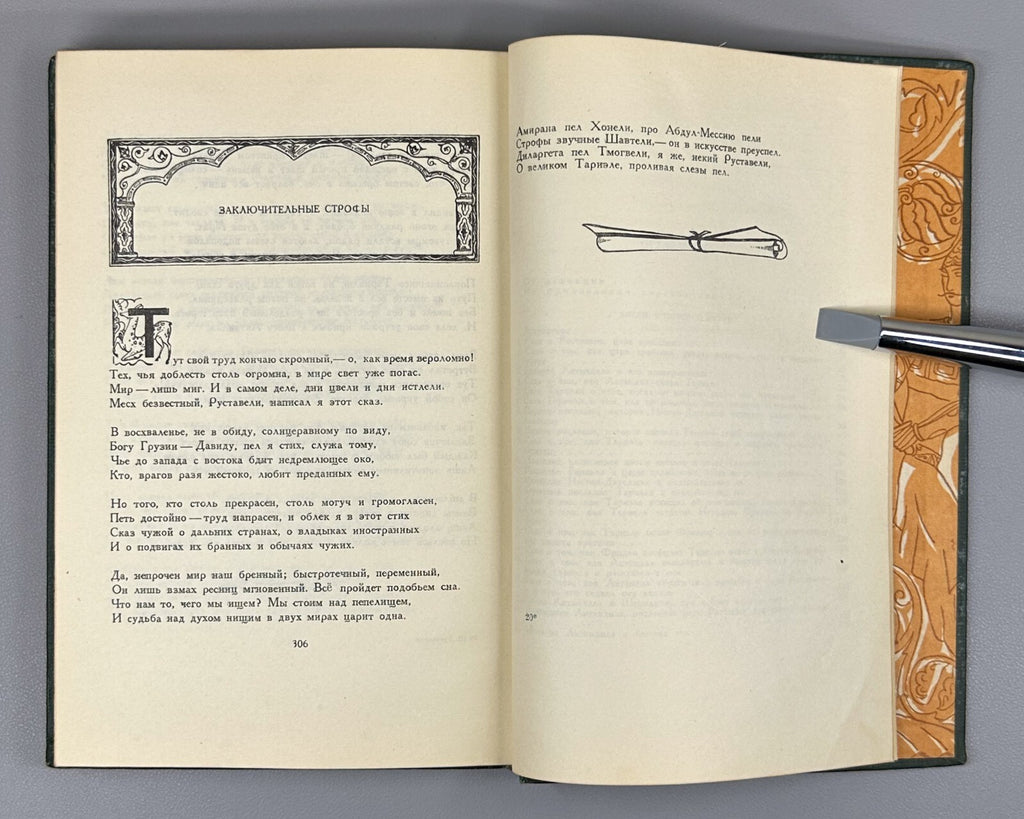 ЗАКЛЮЧИТЕЛЬНЫЕ СТРОФЫ
Тут свой труд кончаю скромный,— о, как время вероломно!
Тех, чья доблесть столь огромна, в мире свет уже погас.
Мир — лишь миг. И в самом деле, дни цвели и дни истлели.
Месх безвестный, Руставели, написал я этот сказ.
В восхваленье, не в обиду, солнцеравному по виду,
Богу Грузии — Давиду, пел я стих, служа тому,
Чье до запада с востока бдит недремлющее око,
Кто, врагов разя жестоко, любит преданных ему.
Но того, кто столь прекрасен, столь могуч и громогласен,
Петь достойно — труд напрасен, и облек я в этот стих
Сказ чужой о дальних странах, о владыках иностранных
И о подвигах их бранных и обычаях чужих.
Да, непрочен мир наш бренный; быстротечный, переменный,
Он лишь взмах ресниц мгновенный. Всё пройдет подобьем сна.
Что нам то, чего мы ищем? Мы стоим над пепелищем,
И судьба над духом нищим в двух мирах царит одна.
306
Амирана пел Хонели, про Абдул-Мессию пели
Строфы звучные Шавтели,— он в искусстве преуспел.
Диларгета пел Тмогвели, я же, некий Руставели,
О великом Тариэле, проливая слезы пел.
20*